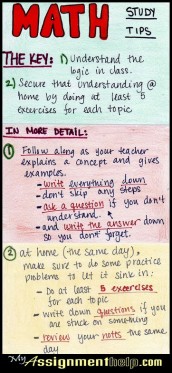 MATH STUDY TIPS
THE KEY: 1) Understand the
logic in class.
2) Secure that understanding @
home by doing at least 5
exercises for each topic
IN MORE DETAIL:
① Follow along as your teacher
explains a concept and gives
examples.
- write everything down
- don't skip any steps
- ask a question if you don't
understand
- and write the answer down
so you don't forget.
② at home (the same day),
make sure to do some practice
problems to let it sink in:
- Do at least 5 exercises
for each topic
- write down questions if you
are stuck on something
- review your notes the same
day
MyAssignmenthelp.com